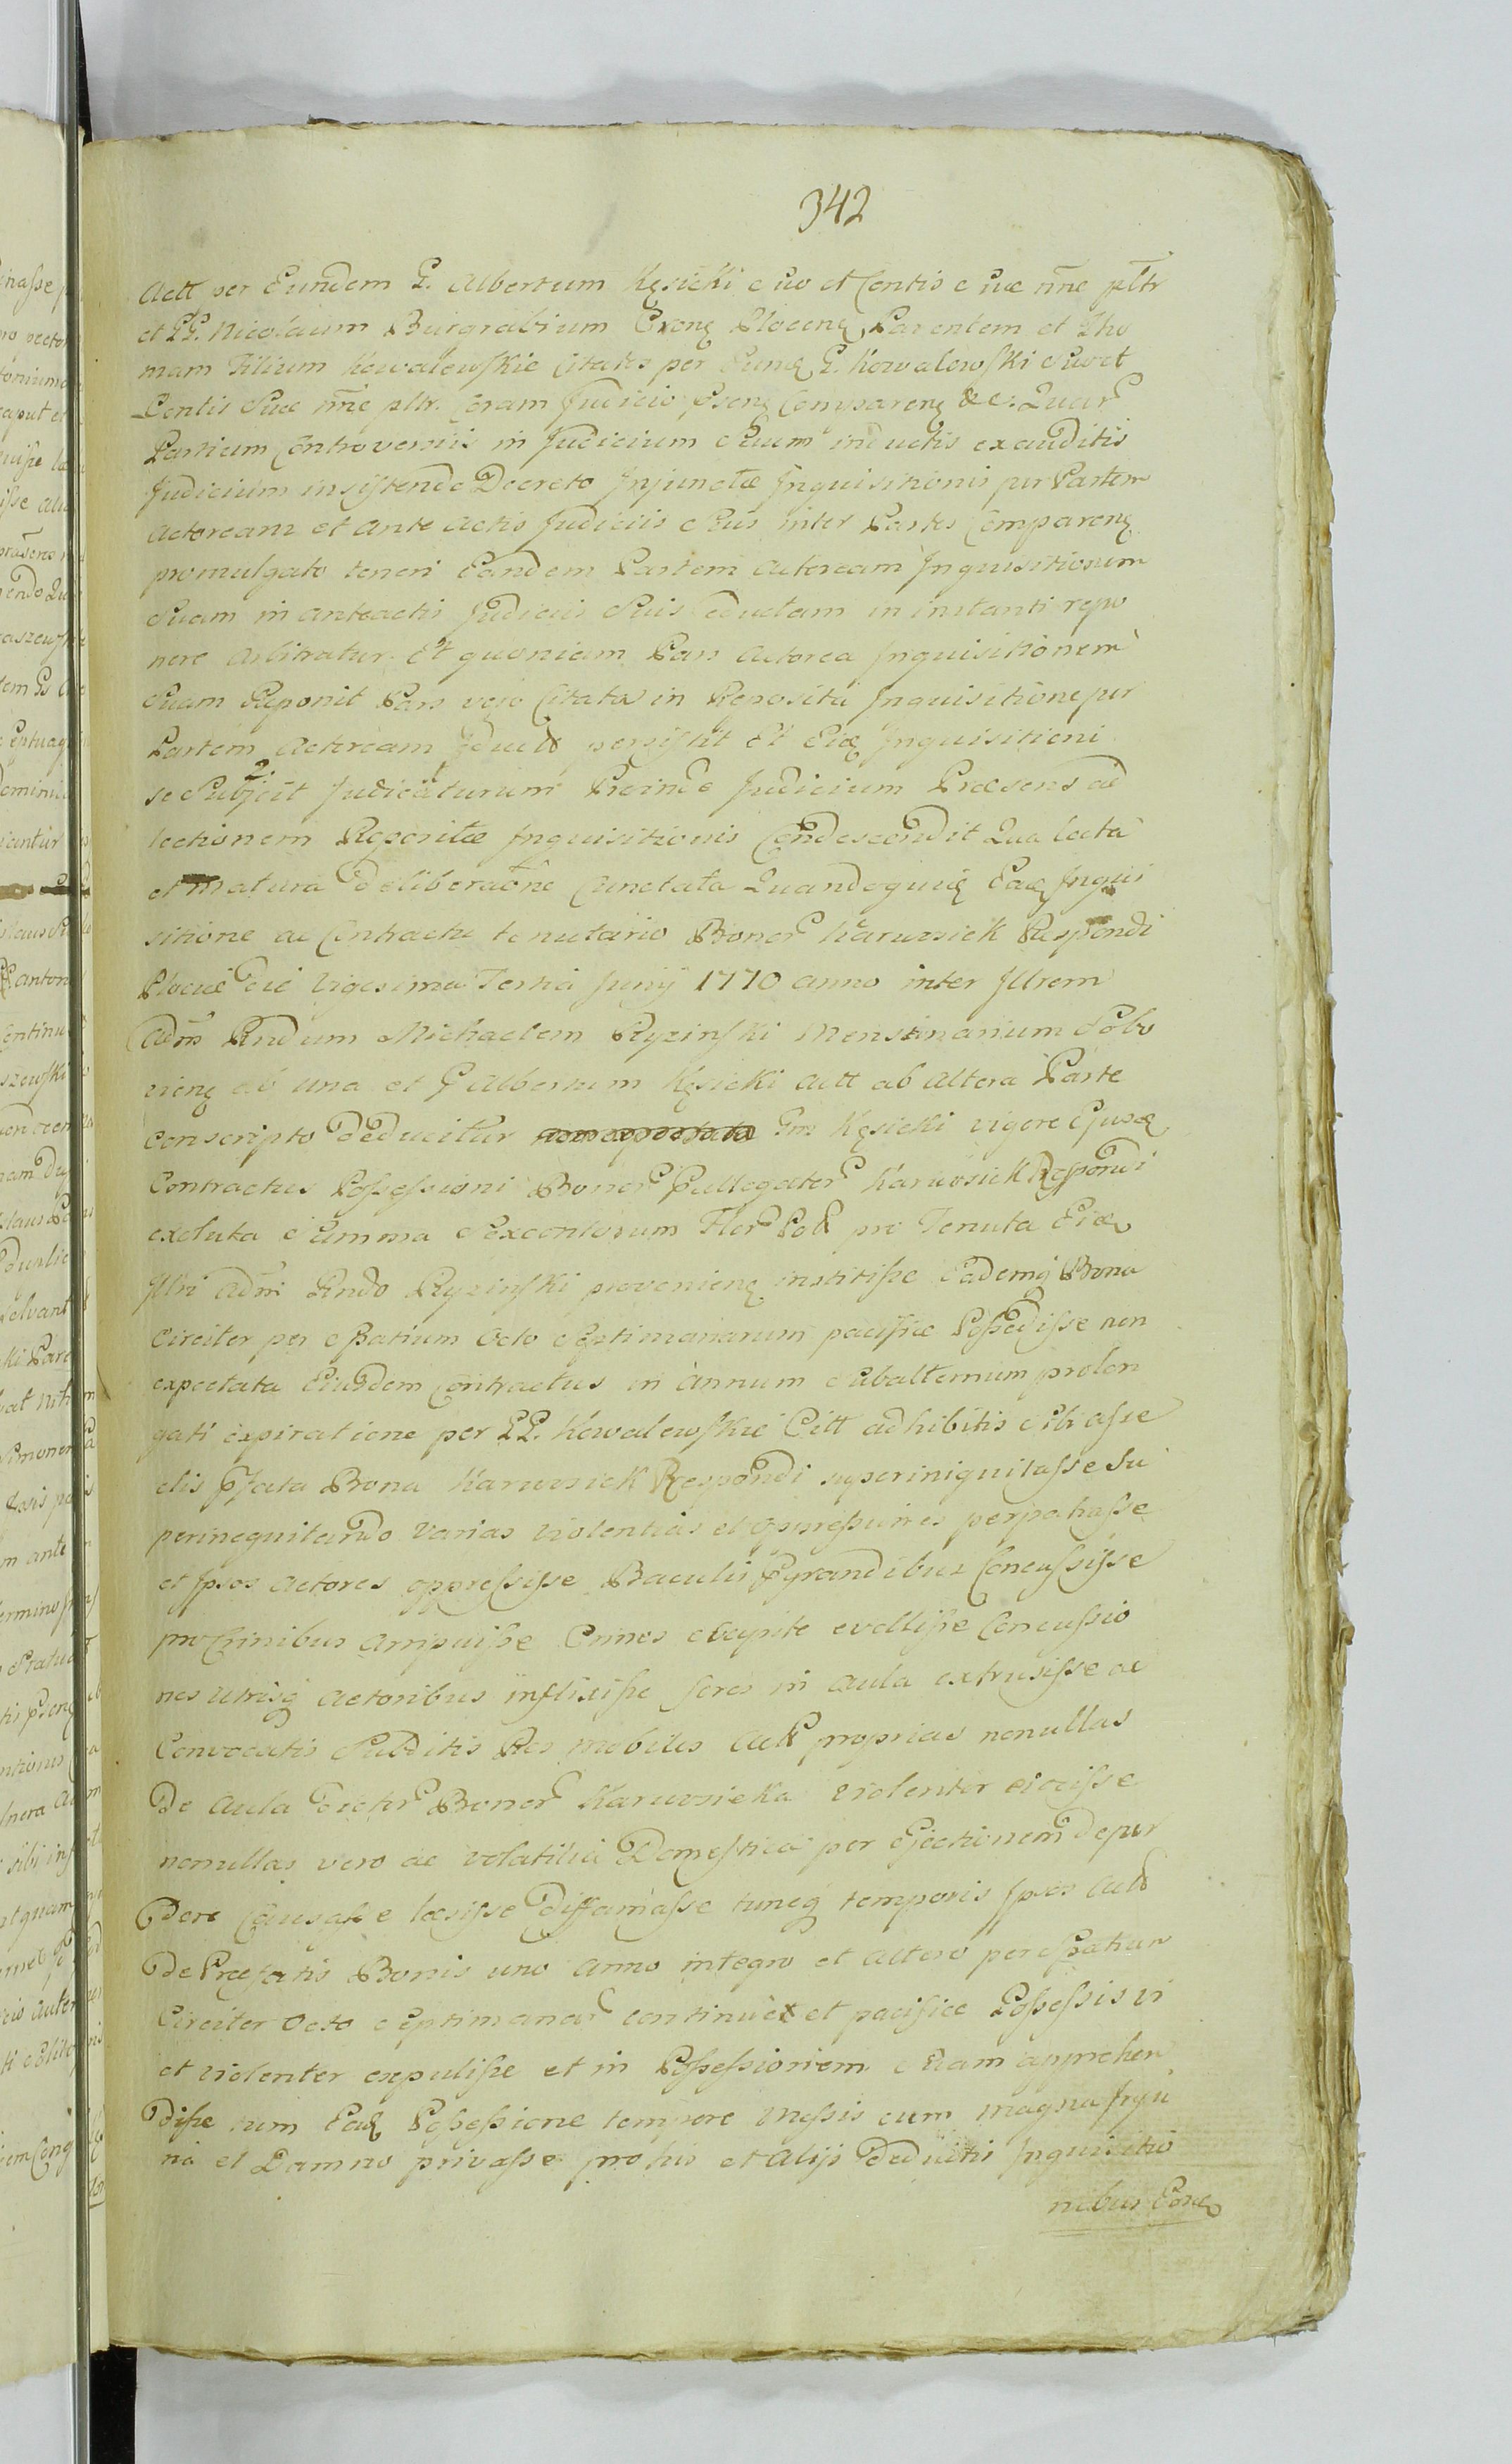 342
Actt per Eundem G. Albertum Kęsicki Suo et Contis Suæ nne pltr
et GG. Nicolaum Burgrabium Crenę Plocenę Parentem et Tho
mam Filium Kowalewskie Citatos per Eunę G. Kowalewski Suo et
Contis Suæ nne pltr. Coram Judicio Psenę Comparenę &c. Quar
Partium Controversiis in Judicium Suum inductis exauditis
Judicium insistendo Decreto Injunctæ Inquisitionis per Partem
Actoream et Ante Actis Judiciis Suis inter Partes Comparenę
promulgato teneri Eandem Partem Actoream Inquisitionem
Suam in anteactis Judiciis Suis eductam in instanti repo
nere Arbitratur. Et quoniam Pars Actorea Inquisitionem
Suam Reponit Pars vero Citata in Reposita Inquisitione per
Partem Actoream persistit Et Eidę Inquisitioni
se Subjecit Judicaturum Proinde Judicium Præsens ad
lectionem Repositæ Inquisitionis Condescendit Qua lecta
et matura deliberaone Cunctata Quandoquidę Eadę Inqui
sitione ac Contractu tenutario Bonor Karwosiek Respondi
Plociæ die Vigesima Tertia Junij 1770 anno inter Illrem
Adm Rndum Michaelem Ryzinski Mensionarium Pobo
zienę ab una et G Albertum Kęsicki Actt ab Altera Parte
conscripto deducitur Gm Kęsicki vigore Ejusdę
Contractus Possessioni Bonor Pallegator Karwosiek Respondi
exoluta Summa Sexcentorum Flor Pol pro Tenuta Eidę
Illri Adm Rndo Ryzinski provenienę institisse Eademq Bona
Circiter per Spatium Octo Septimanarum pacifice Possedisse non
expectata Ejusdem Contractus in Annum Subalternum prolon
gati expiratione per GG. Kowalewskie Citt adhibitis Sibi asse
clis Pfata Bona Karwosiek Respondi superiniquitasse Su
perinequitando varias violentias et oppressiones perpatrasse
et Ipsos Actores oppressisse Baculis Pgrandibus Concussisse
pro Crinibus Arripuisse Crines e Capite evellisse Concussio
nes utrisq Actoribus inflixisse fores in Aula extrusisse ac
Convocatis Subditis Res mobiles Actt proprias nonullas
De Aula dictor Bonor Karwosieka violenter eiecisse
nonullas vero ac volatilia Domestica per Ejectionem deper
dere Causasse læsisse Diffamasse tuncq temporis Ipsos Actt
De Præfatis Bonis uno Anno integro et altero per Spatium
Circiter Octo Septimanar continue et pacifice Possessis vi
et violenter expulisse et in Possessionem Suam apprehen
disse tum Eadę Possessione tempore messis cum magna Inju
ria et Damno privasse pro his et Alijs Deductis Inquisitio
nibus Eonę